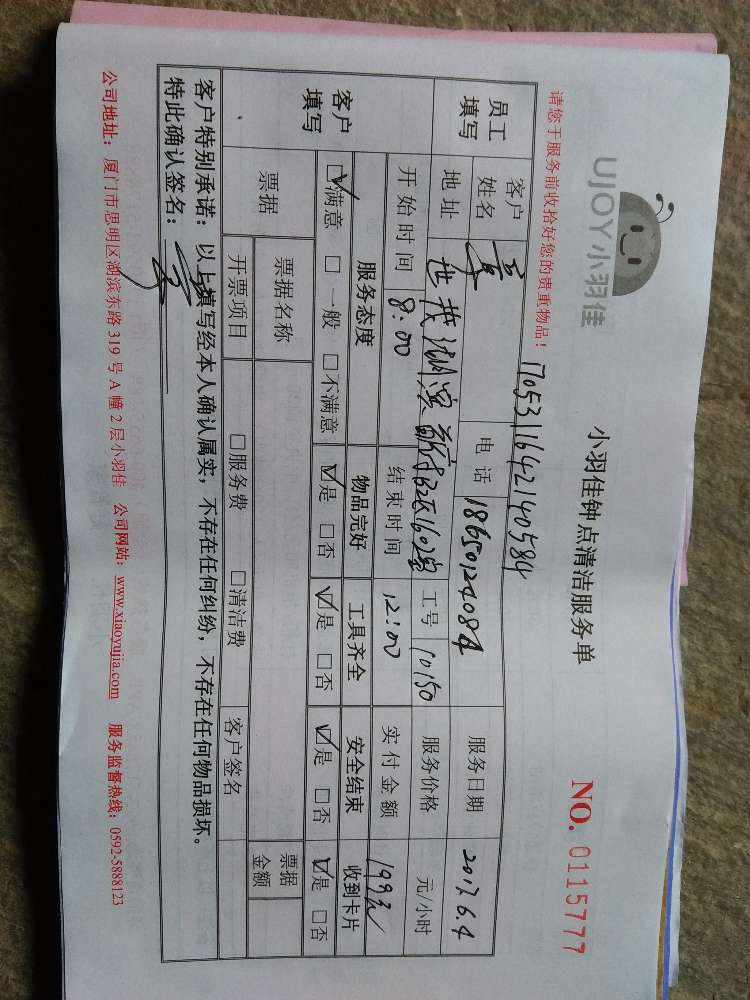 UJOY小羽佳
小羽佳钟点清洁服务单
NO. 0115777
请您于服务前收拾好您的贵重物品！
1705311642140584
员工填写
客户姓名
电话 18650124084
服务日期 2017.6.4
地址
工号 10150
服务价格 元/小时
开始时间 8:00
结束时间 12:00
实付金额 199元
客户填写
服务态度 物品完好 工具齐全 安全结束 收到卡片
☑满意 □一般 □不满意 ☑是 □否 ☑是 □否 ☑是 □否 ☑是 □否
票据
票据名称
票据金额
开票项目 □服务费 □清洁费 客户签名
客户特别承诺：以上填写经本人确认属实，不存在任何纠纷，不存在任何物品损坏。
特此确认签名：
公司地址：厦门市思明区湖滨东路 319 号 A 幢 2 层小羽佳 公司网站：www.xiaoyujia.com 服务监督热线：0592-5888123